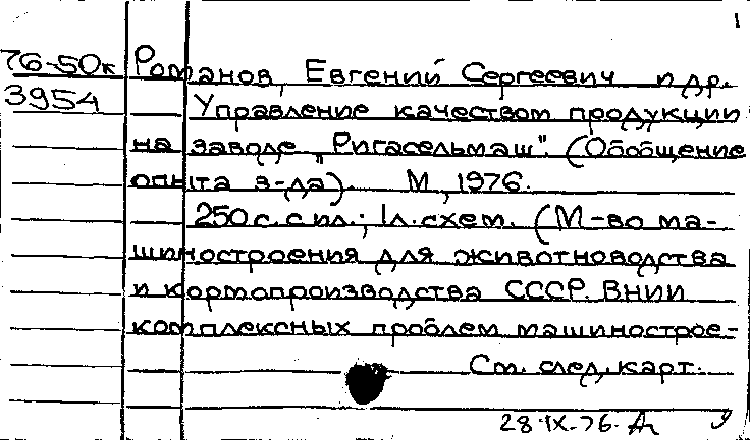 1
76-50к Романов, Евгений Сергеевич и др.
3954 Управление качеством продукции
на заводе „Ригасельмаш". (Обобщение
опыта з-да). М., 1976.
250 с. с ил.; 1 л. схем. (М-во ма-
шиностроения для животноводства
и кормопроизводства СССР. ВНИИ
комплексных проблем машинострое-
См. след. карт.
28.IX.76.